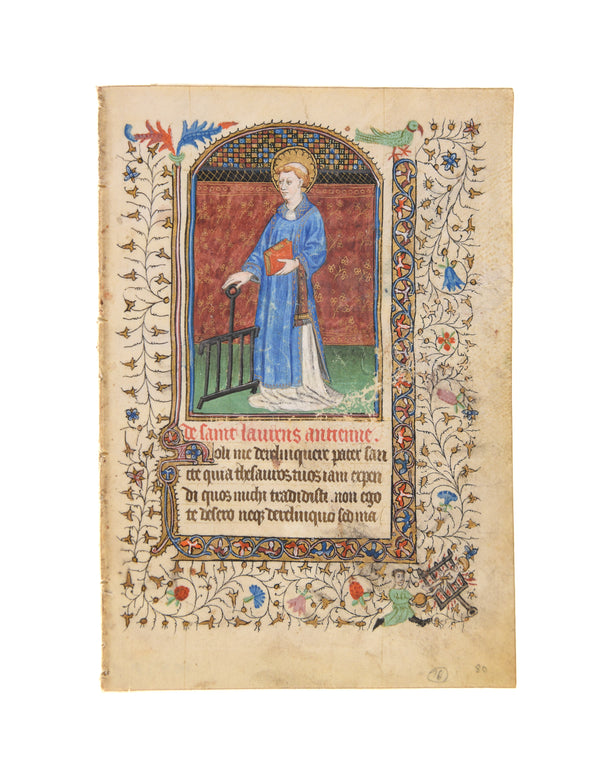 de saint laurens antienne.
Noli me derelinquere pater san
cte quia thesauros tuos iam expen
di quos michi tradidisti. non ego
te desero neq; derelinquo sed ma
16 80